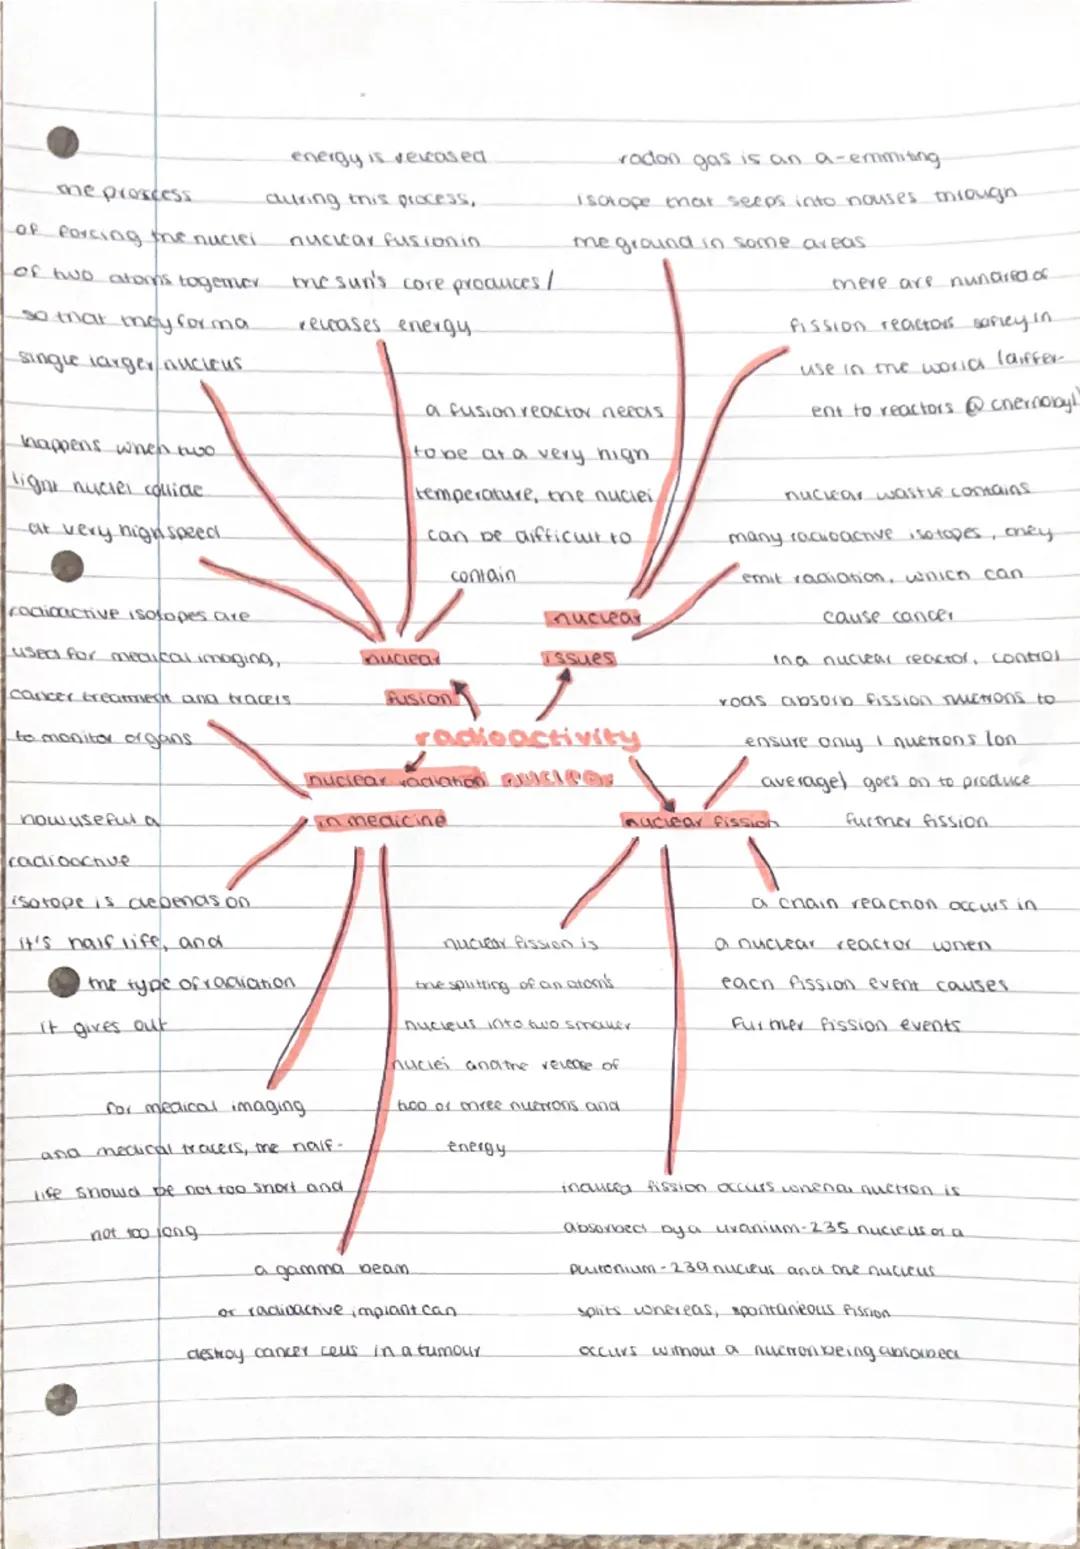 the proscess
of forcing the nuclei
of two atoms together
so that they form a
single larger nucleus
energy is released
during this process,
nuclear fusion in
the sun's core produces /
releases energy
radon gas is an α-emmiting
isotope that seeps into houses through
the ground in some areas
there are hundred of
fission reactors safley in
use in the world (differ-
ent to reactors @ chernobyl)
happens when two
light nuclei collide
at very high speed
a fusion reactor needs
to be at a very high
temperature, the nuclei
can be difficult to
contain
nuclear waste contains
many radioactive isotopes, they
emit radiation, which can
cause cancer
radioactive isotopes are
used for medical imaging,
cancer treatment and tracers
to monitor organs
nuclear
fusion
nuclear
issues
in a nuclear reactor, control
rods absorb fission nuetrons to
ensure only 1 nuetrons (on
average) goes on to produce
further fission
radioactivity
nuclear radiation
in medicine
nuclear fission
how useful a
radioactive
isotope is debends on
it's half life, and
the type of radiation
it gives out
nuclear fission is
the splitting of an atom's
nucleus into two smaller
nuclei and the release of
two or three nuetrons and
energy
a chain reaction occurs in
a nuclear reactor when
each fission event causes
further fission events
for medical imaging
and medical tracers, the half-
life should be not too short and
not too long
a gamma beam
or radioactive implant can
destroy cancer cells in a tumour
induced fission occurs when a nuetron is
absorbed by a uranium-235 nucleus or a
plutonium-239 nucleus and the nucleus
splits whereas, spontaneous fission
occurs without a nuetron being absorbed